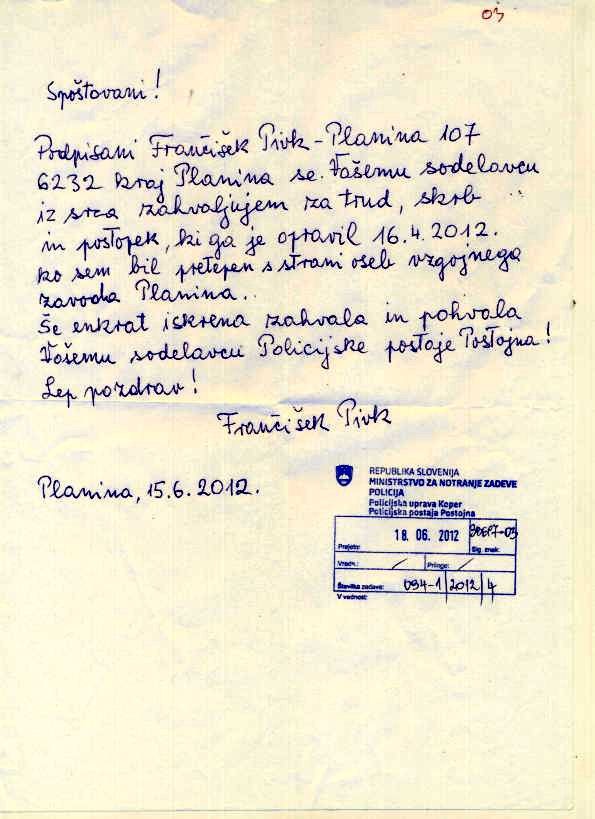 03
Spoštovani!
Podpisani Frančišek Pivk - Planina 107
6232 kraj Planina se Vašemu sodelavcu
iz srca zahvaljujem za trud, skrb
in postopek, ki ga je opravil 16.4.2012.
ko sem bil pretepen s strani oseb vzgojnega
zavoda Planina..
Še enkrat iskrena zahvala in pohvala
Vašemu sodelavcu Policijske postaje Postojna!
Lep pozdrav!
Frančišek Pivk
Planina, 15.6.2012.
REPUBLIKA SLOVENIJA
MINISTRSTVO ZA NOTRANJE ZADEVE
POLICIJA
Policijska uprava Koper
Policijska postaja Postojna
Prejeto: 18. 06. 2012 Sig. znak:
Vredn.: / Priloge: /
Številka zadeve: 094-1 2012 4
V vednost: